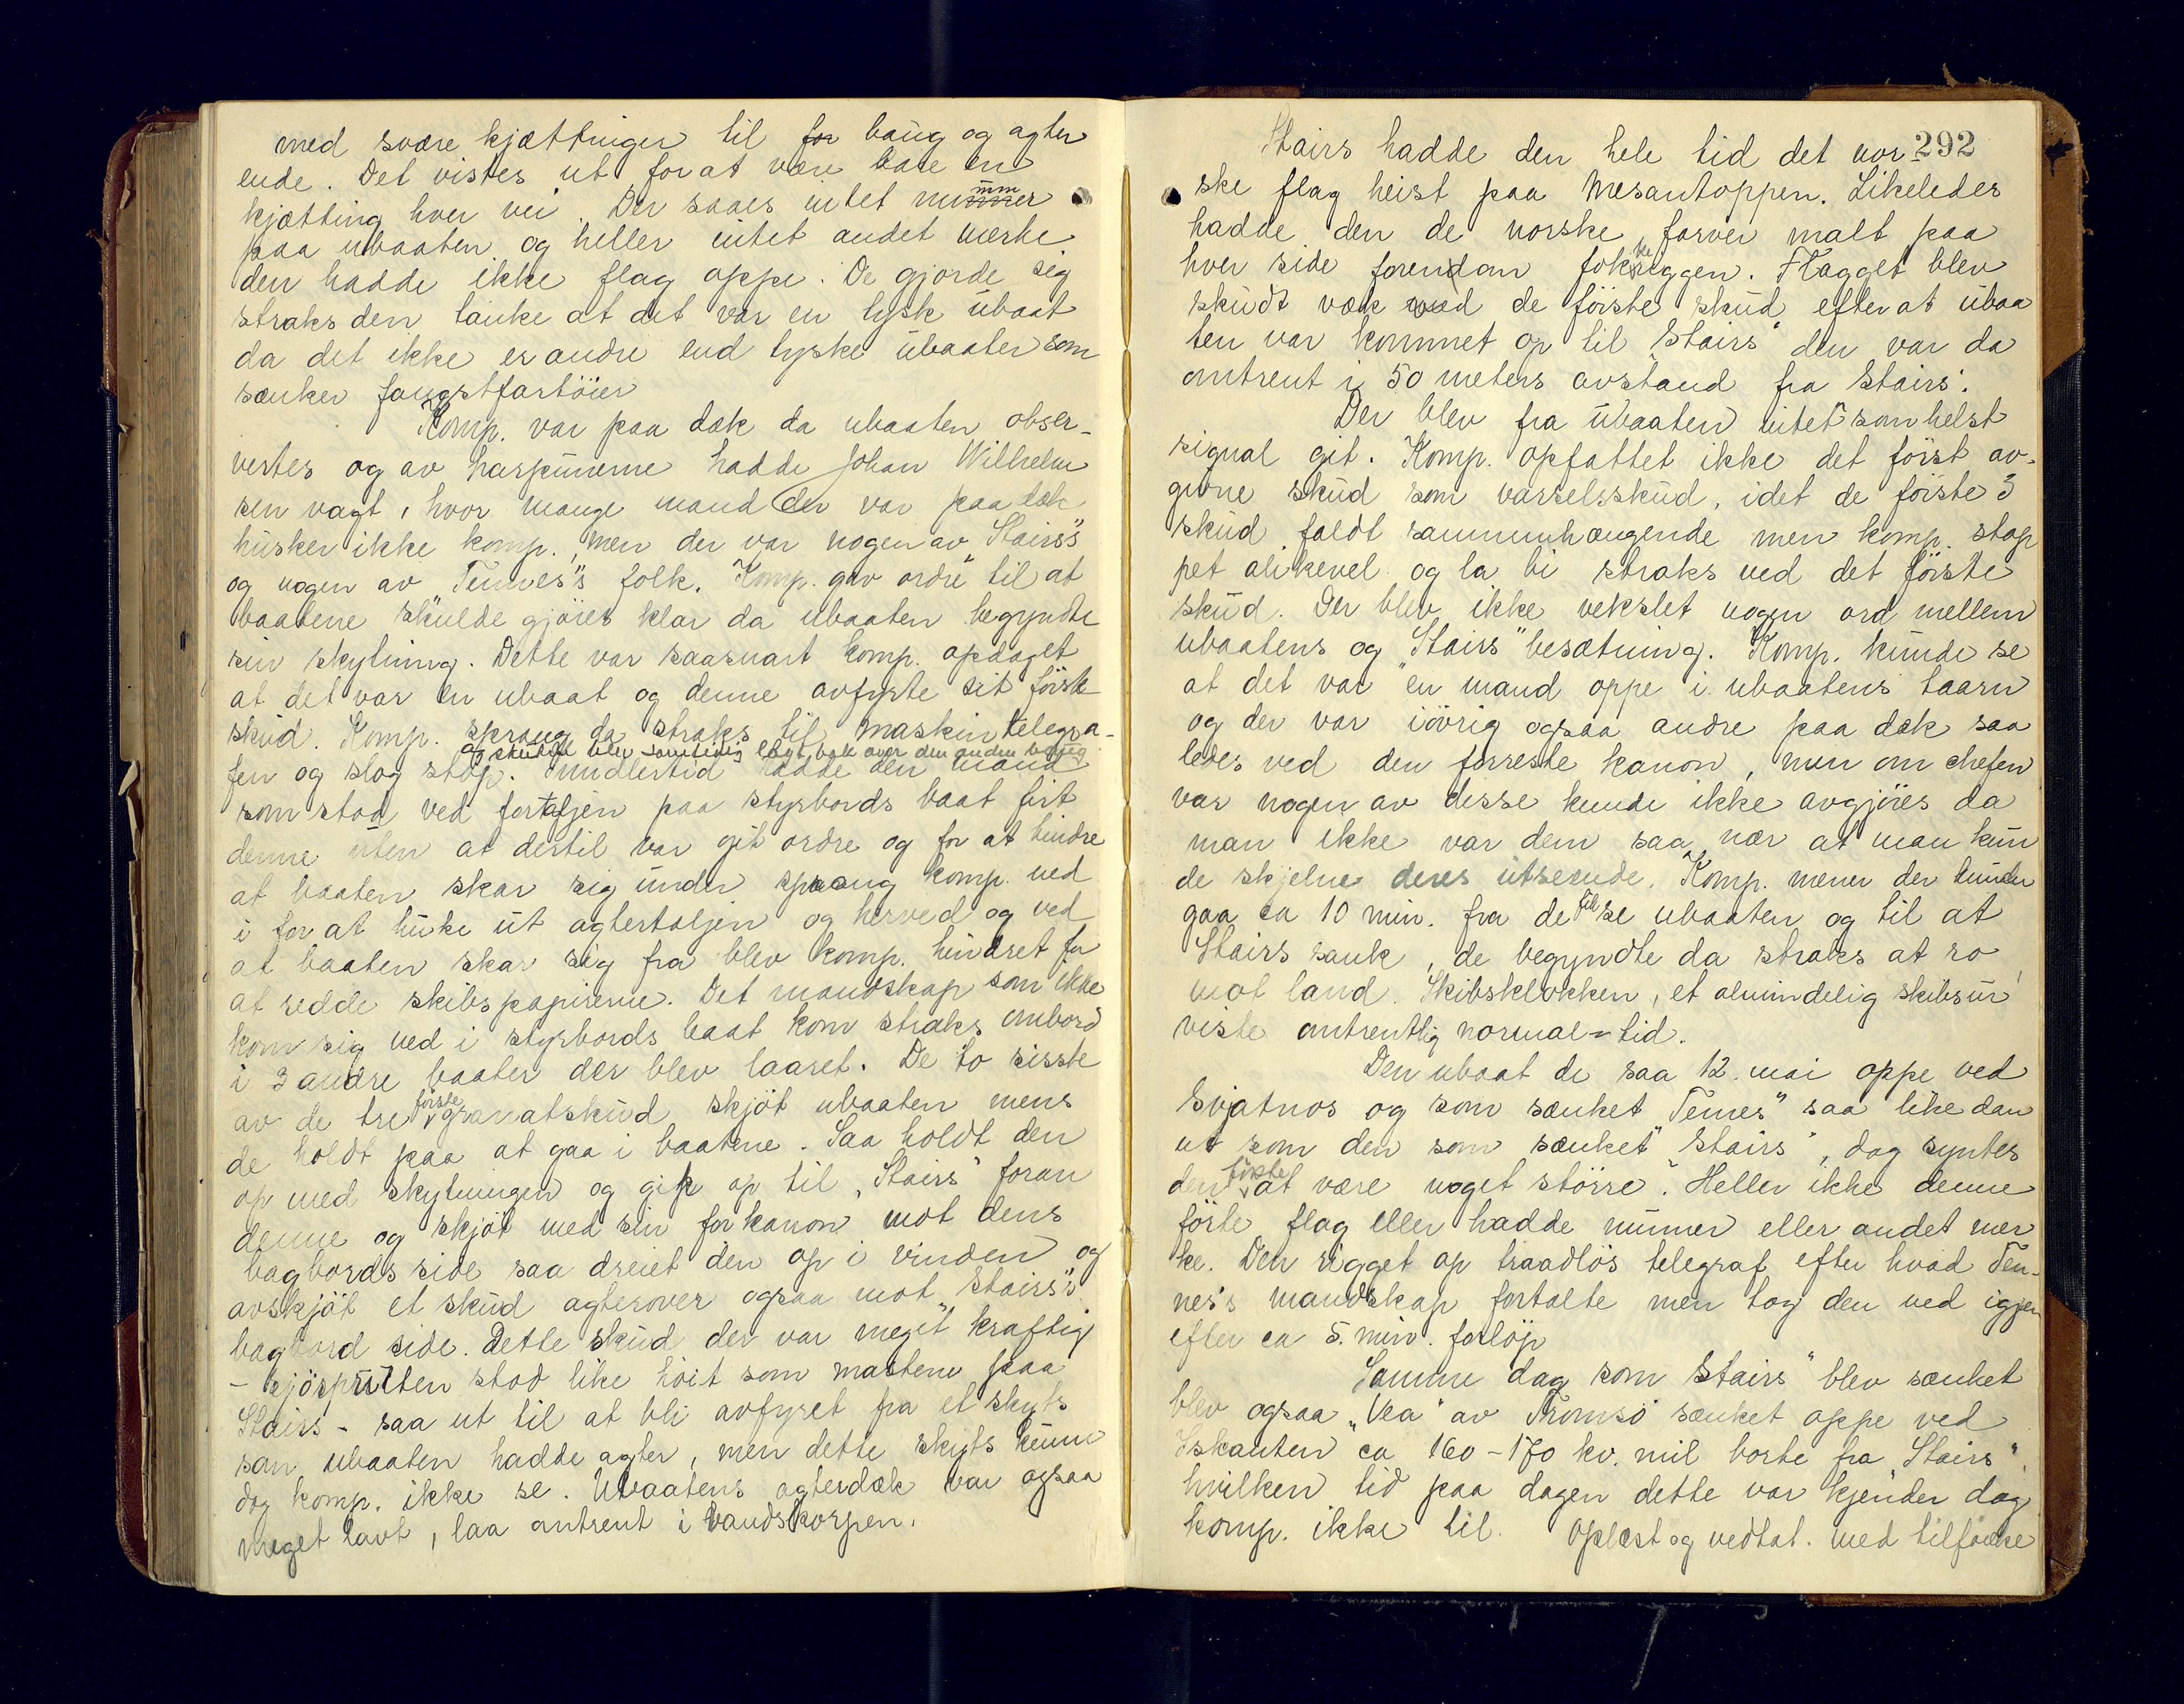 med svære kjættinger til for baug og agter
ende. Det vistes ut for at være bare en
kjætting hver vei. Der saaes intet nummer
paa ubaaten og heller intet andet merke
den hadde ikke flag oppe. De gjorde sig
straks den tanke at det var en tysk ubaat
da det ikke er andre end tyske ubaater som
sænker fangstfartöier
Komp. var paa dæk da ubaaten obser-
vertes og av harpunerne hadde Johan Wilhelm
sen vagt, hvor mange mand der var paa dæk
husker ikke komp. men der var nogen av „Stairs"s
og nogen av „Tennes"s folk. Komp. gav ordre til at
baatene skulde gjöres klar da ubaaten begyndte
sin skytning. Dette var saasnart komp. opdaget
at det var en ubaat og denne avfyrte sit förste
skud. Komp. sprang da straks til maskintelegra-
og skutet blev samtidig lagt bak over den anden beseg
fen og slog stop. Imidlertid hadde den mand
som stod ved fortaljen paa styrbords baat firt
denne uten at dertil var git ordre og for at hindre
at baaten skar sig under sprang komp. ned
i for at huke ut agtertaljen og herved og ved
at baaten skar sig fra blev komp. hindret fra
at redde skibspapirerne. Det mandskap som ikke
kom sig ned i styrbords baat kom straks ombord
i 3 andre baater der blev laaret. De to sisste
av de tre förste granatskud skjöt ubaaten mens
de holdt paa at gaa i baatene. Saa holdt den
op med skytningen og gik op til „Stairs" foran
denne og skjöt med sin forkanon mot dens
bagbords side saa dreiet den op i vinden og
avskjöt et skud agterover ogsaa mot „Stairs"s
bagbord side. Dette skud der var meget kraftig
- sjösprutten stod like höit som mastene paa
Stairs - saa ut til at bli avfyret fra et skyts
som ubaaten hadde agter, men dette skyts kunne
dog komp. ikke se. Ubaatens agterdæk var ogsaa
meget lavt, laa omtrent i vandskorpen.
292
Stairs hadde den hele tid det nor-
ske flag heist paa mesantoppen. Likeledes
hadde den de norske farver malt paa
hver side forendom fokkeriggen. Flagget blev
skudt væk ved de förste skud efter at ubaa
ten var kommet op til „Stairs" den var da
omtrent i 50 meters avstand fra Stairs.
Der blev fra ubaaten intet somhelst
signal git. Komp. opfattet ikke det först av-
givne skud som varselsskud, idet de förste 3
skud faldt sammenhængende men komp. stop
pet alikevel og la bi straks ved det förste
skud. Der blev ikke vekslet nogen ord mellem
ubaatens og „Stairs" besætning. Komp. kunde se
at det var en mand oppe i ubaatens taarn
og der var iövrig ogsaa andre paa dæk saa
ledes ved den forreste kanon, men om chefen
var nogen av disse kunde ikke avgjöres da
man ikke var dem saa nær at man kun
de skjelne deres utseende. Komp. mener der kunde
gaa ca 10 min. fra de fik se ubaaten og til at
Stairs sank, de begyndte da straks at ro
mot land. Skibsklokken, et almindelig skibsur
viste omtrentlig normal-tid.
Den ubaat de saa 12. mai oppe ved
Svjatnos og som sænket „Tennes" saa like dan
ut som den som sænket „Stairs", dog syntes
den förste at være noget större. Heller ikke denne
förte flag eller hadde numer eller andet mer
ke. Den rigget op traadlös telegraf efter hvad Ten-
nes's mandskap fortalte men tog den ned igjen
efter ca 5. min. forlöp
Samme dag som „Stairs" blev sænket
blev ogsaa „Vea" av Tromsö sænket oppe ved
Iskanten ca 160-170 kv. mil borte fra „Stairs".
hvilken tid paa dagen dette var kjender dog
komp. ikke til. Oplæst og vedtat. med tilföielse